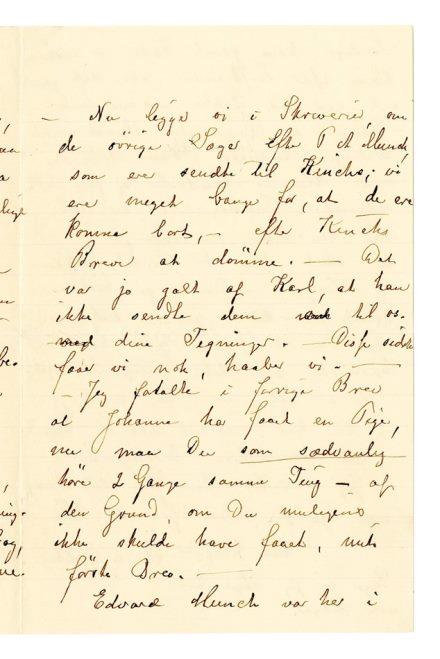 — Nu ligge vi i Skriverie, om
de övrige Sager efter P A Munch,
som ere sendte til Kinchs; vi
ere meget bange for, at de ere
komne bort, — efter Kinchs
Breve at dömme. — Det
var jo galt af Karl, at han
ikke sendte dem til os.
dine Tegninger. — Disse sidste
faaer vi nok, haaber vi. —
— Jeg fortalte i forrige Brev
at Johanna har faaet en Pige,
nu maa Du som sædvanlig
höre 2 Gange samme Ting — af
den Grund, om Du muligens
ikke skulde have faaet, mit
förste Brev. —
Edvard Munch var her i